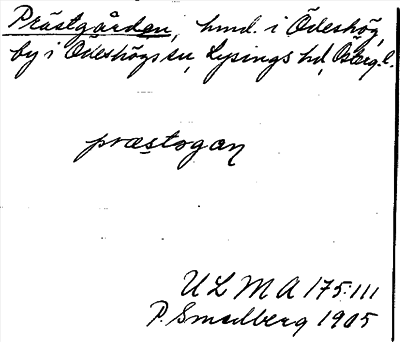 Prästgården, hmd. i Ödeshög,
by i Ödeshögs sn, Lysings hd, Östergl.
præstogan
ULMA 175:111
P. Smedberg 1905